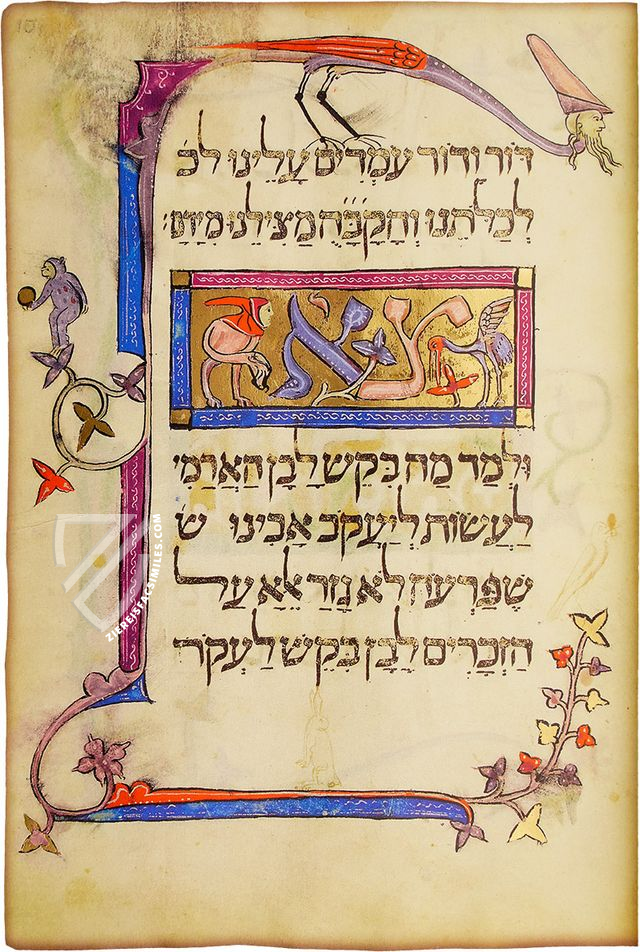 דור ודור עמדים עלינו לכ
לכלתנו והקבה מצילנו מידם:
צא
ולמד מה בקש לבן הארמי
לעשות ליעקב אבינו ש
שפרעה לא גזר אלא על
הזכרים לבן בקש לעקר
ZIEREISFACSIMILES.COM